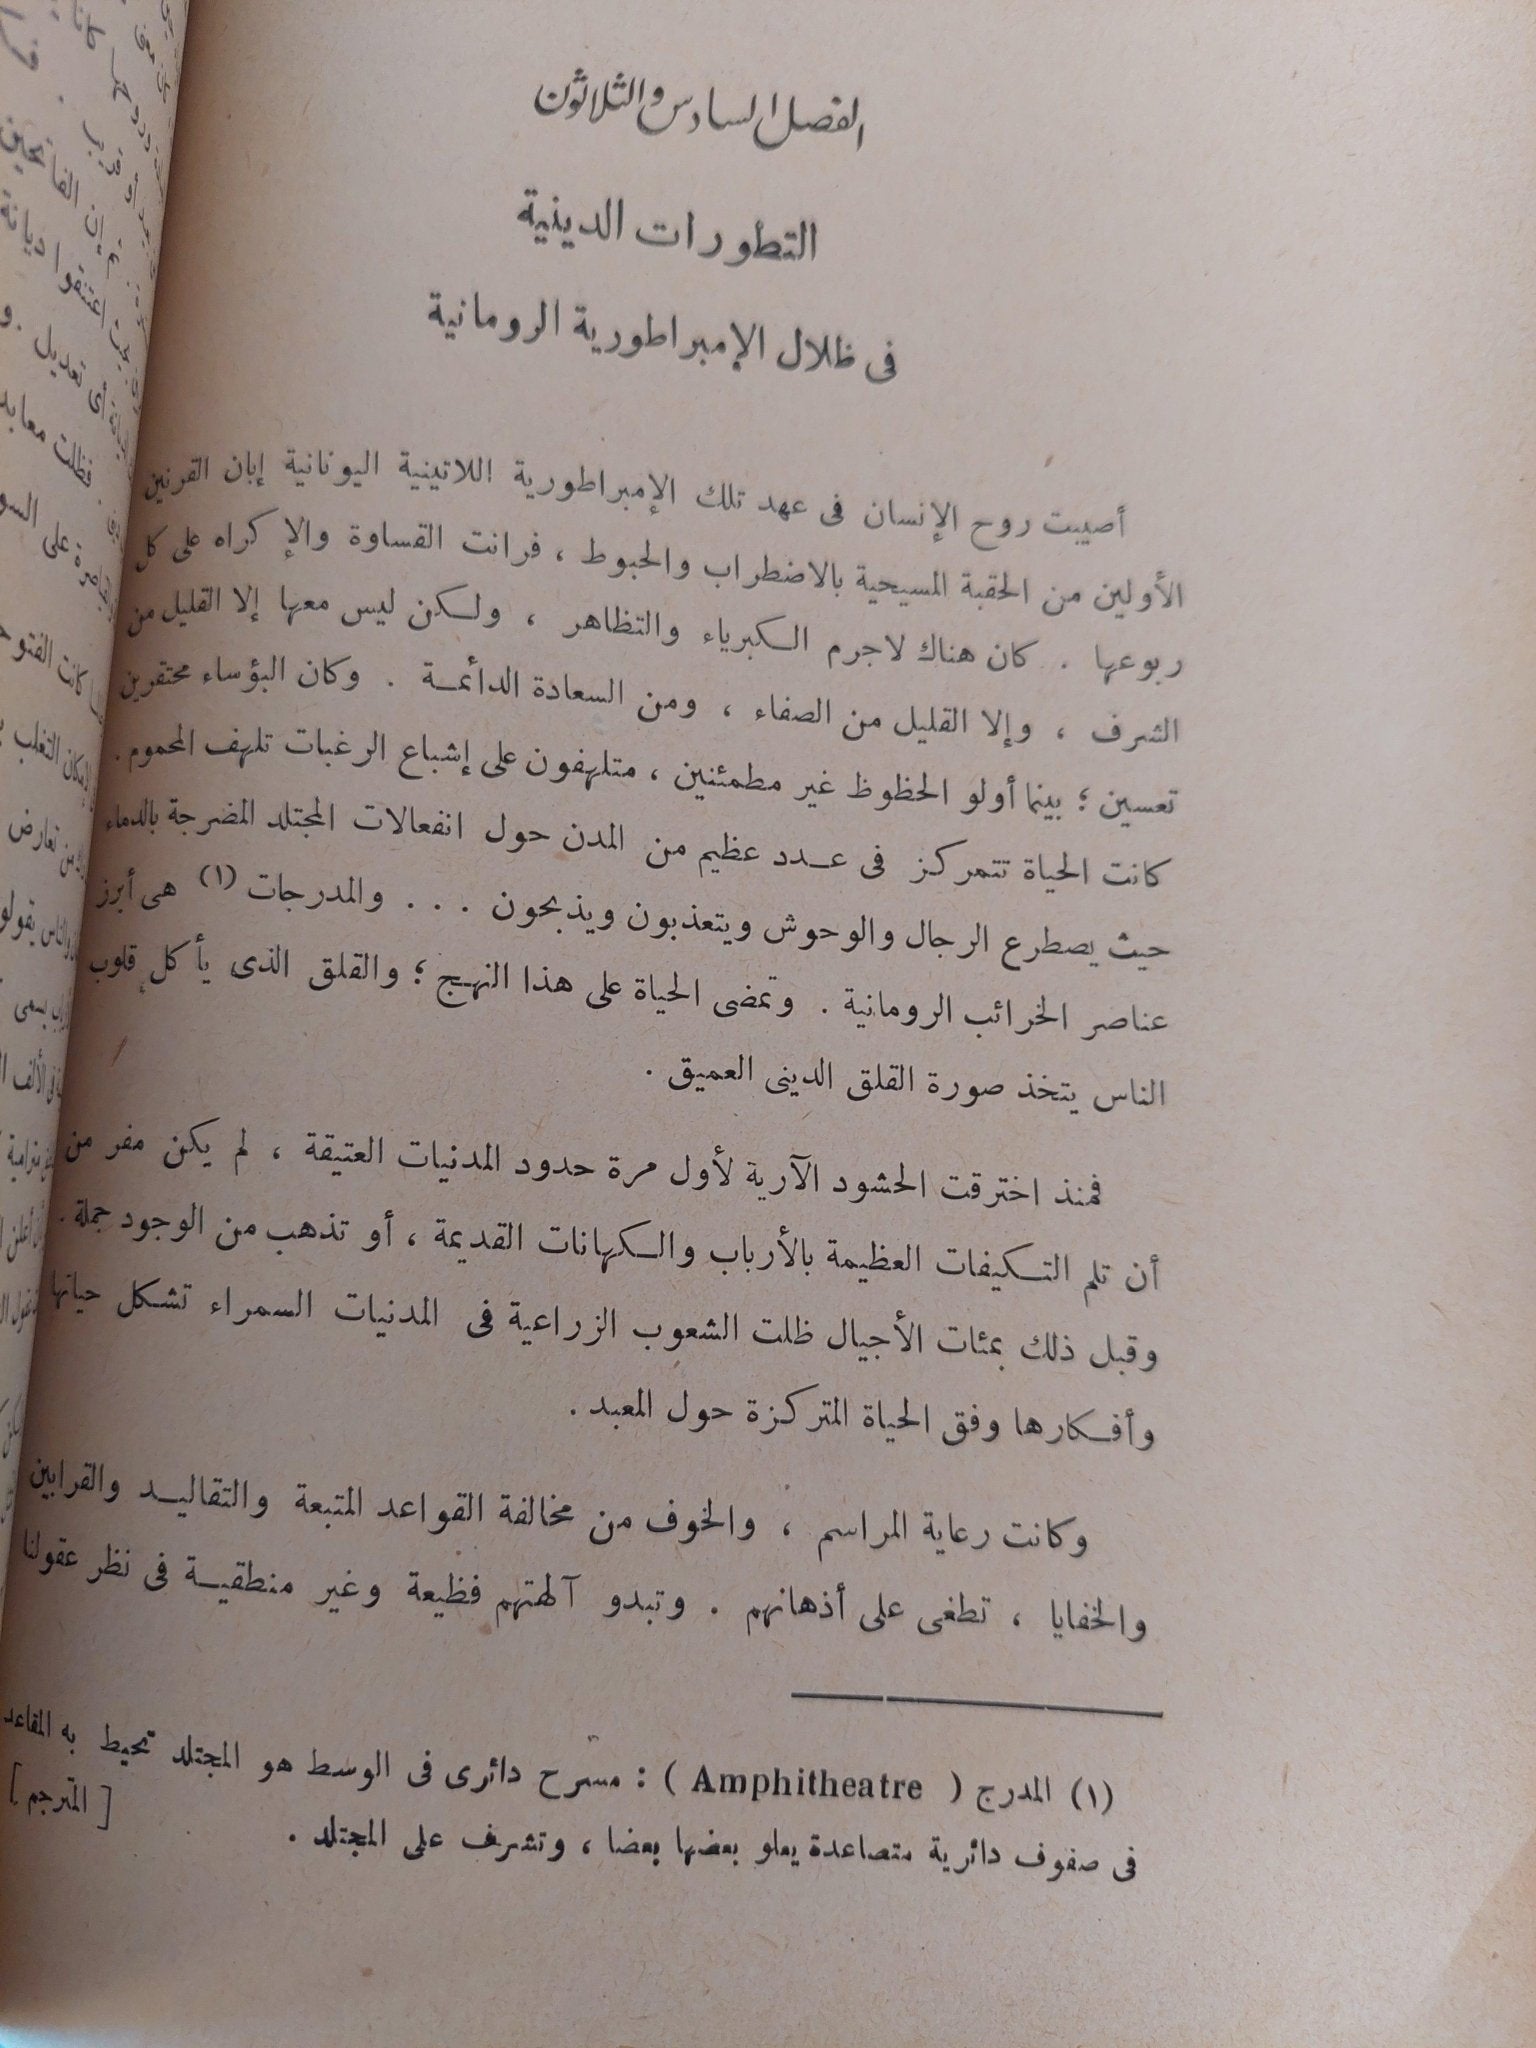 الفصل السادس والثلاثون
التطورات الدينية
فى ظلال الإمبراطورية الرومانية
أصيبت روح الإنسان فى عهد تلك الإمبراطورية اللاتينية اليونانية إبان القرنين
الأولين من الحقبة المسيحية بالاضطراب والحبوط ، فرانت القساوة والإكراه على كل
ربوعها . كان هناك لاجرم الكبرياء والتظاهر ، ولكن ليس معها إلا القليل من
الشرف ، وإلا القليل من الصفاء ، ومن السعادة الدائمة . وكان البؤساء محتقرين
تعسين ؛ بينما أولو الحظوظ غير مطمئنين ، متلهفون على إشباع الرغبات تلهف المحموم .
كانت الحياة تتمركز فى عدد عظيم من المدن حول انفعالات المجتلد المضرجة بالدماء
حيث يصطرع الرجال والوحوش ويتعذبون ويذبحون . . . والمدرجات (١) هى أبرز
عناصر الخرائب الرومانية . وتمضى الحياة على هذا النهج ؛ والقلق الذى يأكل قلوب
الناس يتخذ صورة القلق الدينى العميق .
فمنذ اخترقت الحشود الآرية لأول مرة حدود المدنيات العتيقة ، لم يكن مفر من
أن تلم التكيفات العظيمة بالأرباب والكهانات القديمة ، أو تذهب من الوجود جملة .
وقبل ذلك بمئات الأجيال ظلت الشعوب الزراعية فى المدنيات السمراء تشكل حياتها
وأفكارها وفق الحياة المتركزة حول المعبد .
وكانت رعاية المراسم ، والخوف من مخالفة القواعد المتبعة والتقاليد والقرابين
والخفايا ، تطغى على أذهانهم . وتبدو آلهتهم فظيعة وغير منطقية فى نظر عقولنا
(١) المدرج ( Amphitheatre ) : مسرح دائرى فى الوسط هو المجتلد تحيط به المقاعد
فى صفوف دائرية متصاعدة يعلو بعضها بعضا ، وتشرف على المجتلد . [ المترجم ]